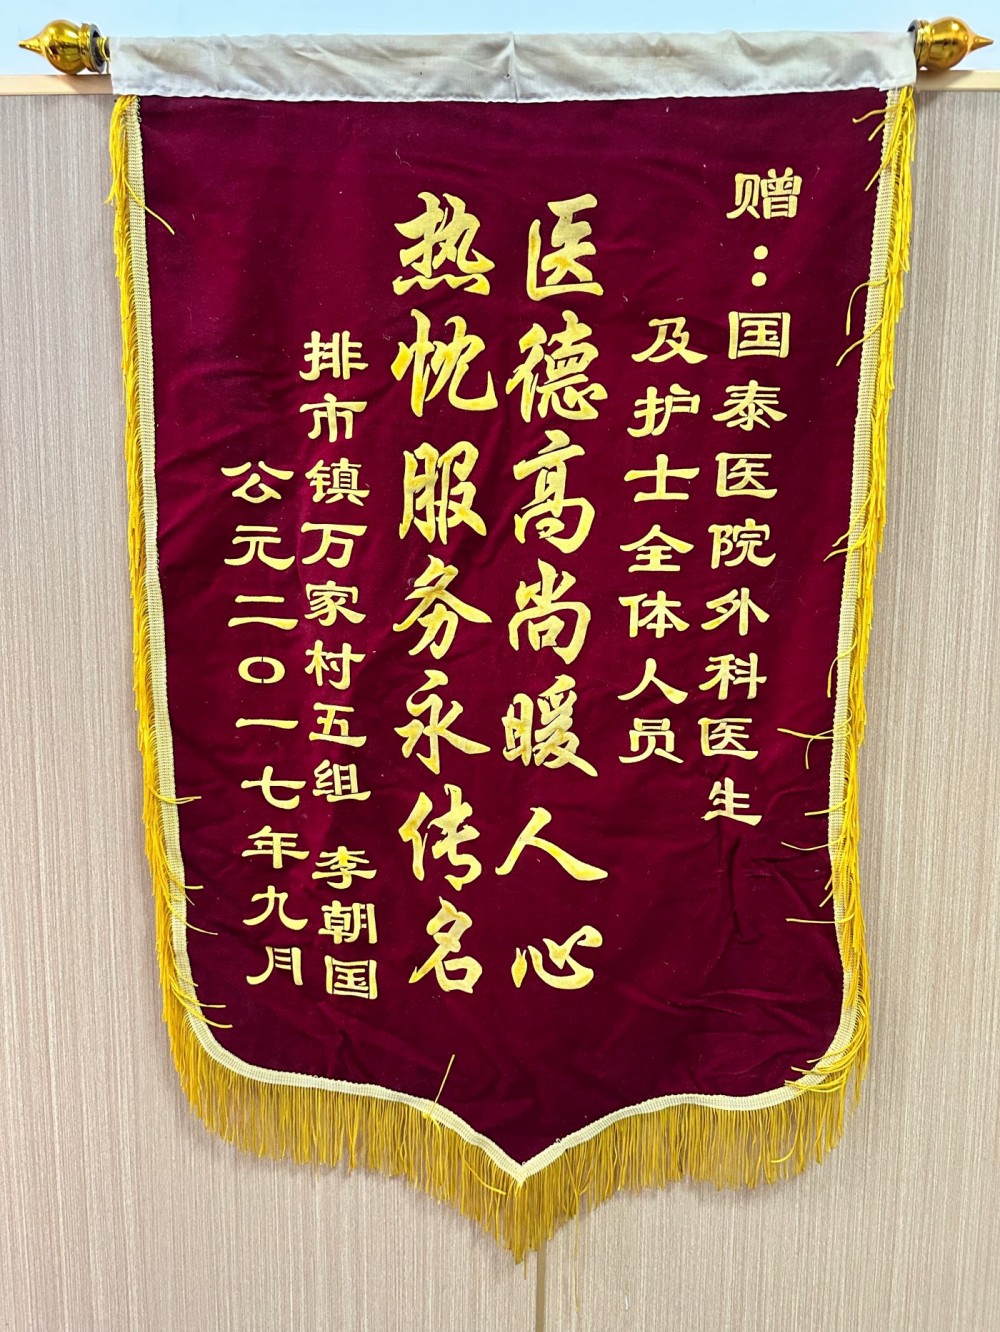 赠：国泰医院外科医生
及护士全体人员
医德高尚暖人心
热忱服务永传名
排市镇万家村五组 李朝国
公元二〇一七年九月